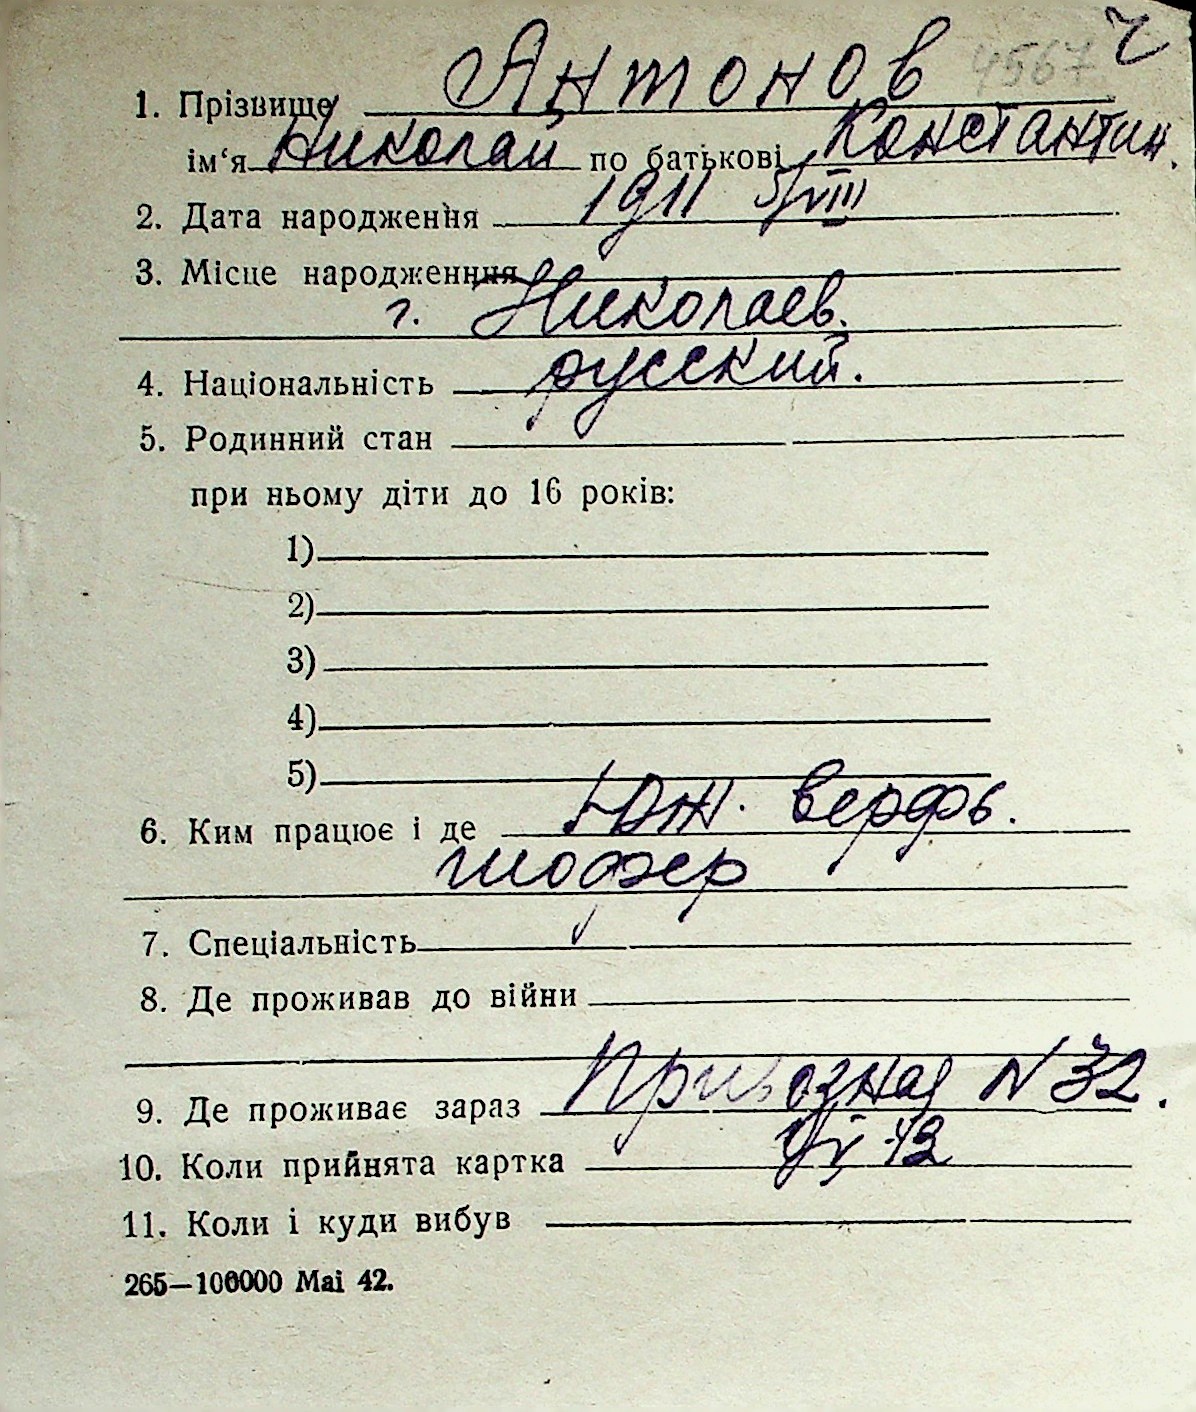 4567 ч
1. Прізвище Антонов
ім‘я Николай по батькові Константин.
2. Дата народження 1911 5/VIII
3. Місце народження
г. Николаев.
4. Національність русский.
5. Родинний стан
при ньому діти до 16 років:
1)
2)
3)
4)
5)
6. Ким працює і де Юж. верфь.
шофер
7. Спеціальність
8. Де проживав до війни
9. Де проживає зараз Привозная N 32.
10. Коли прийнята картка
11. Коли і куди вибув
265—100000 Mai 42.